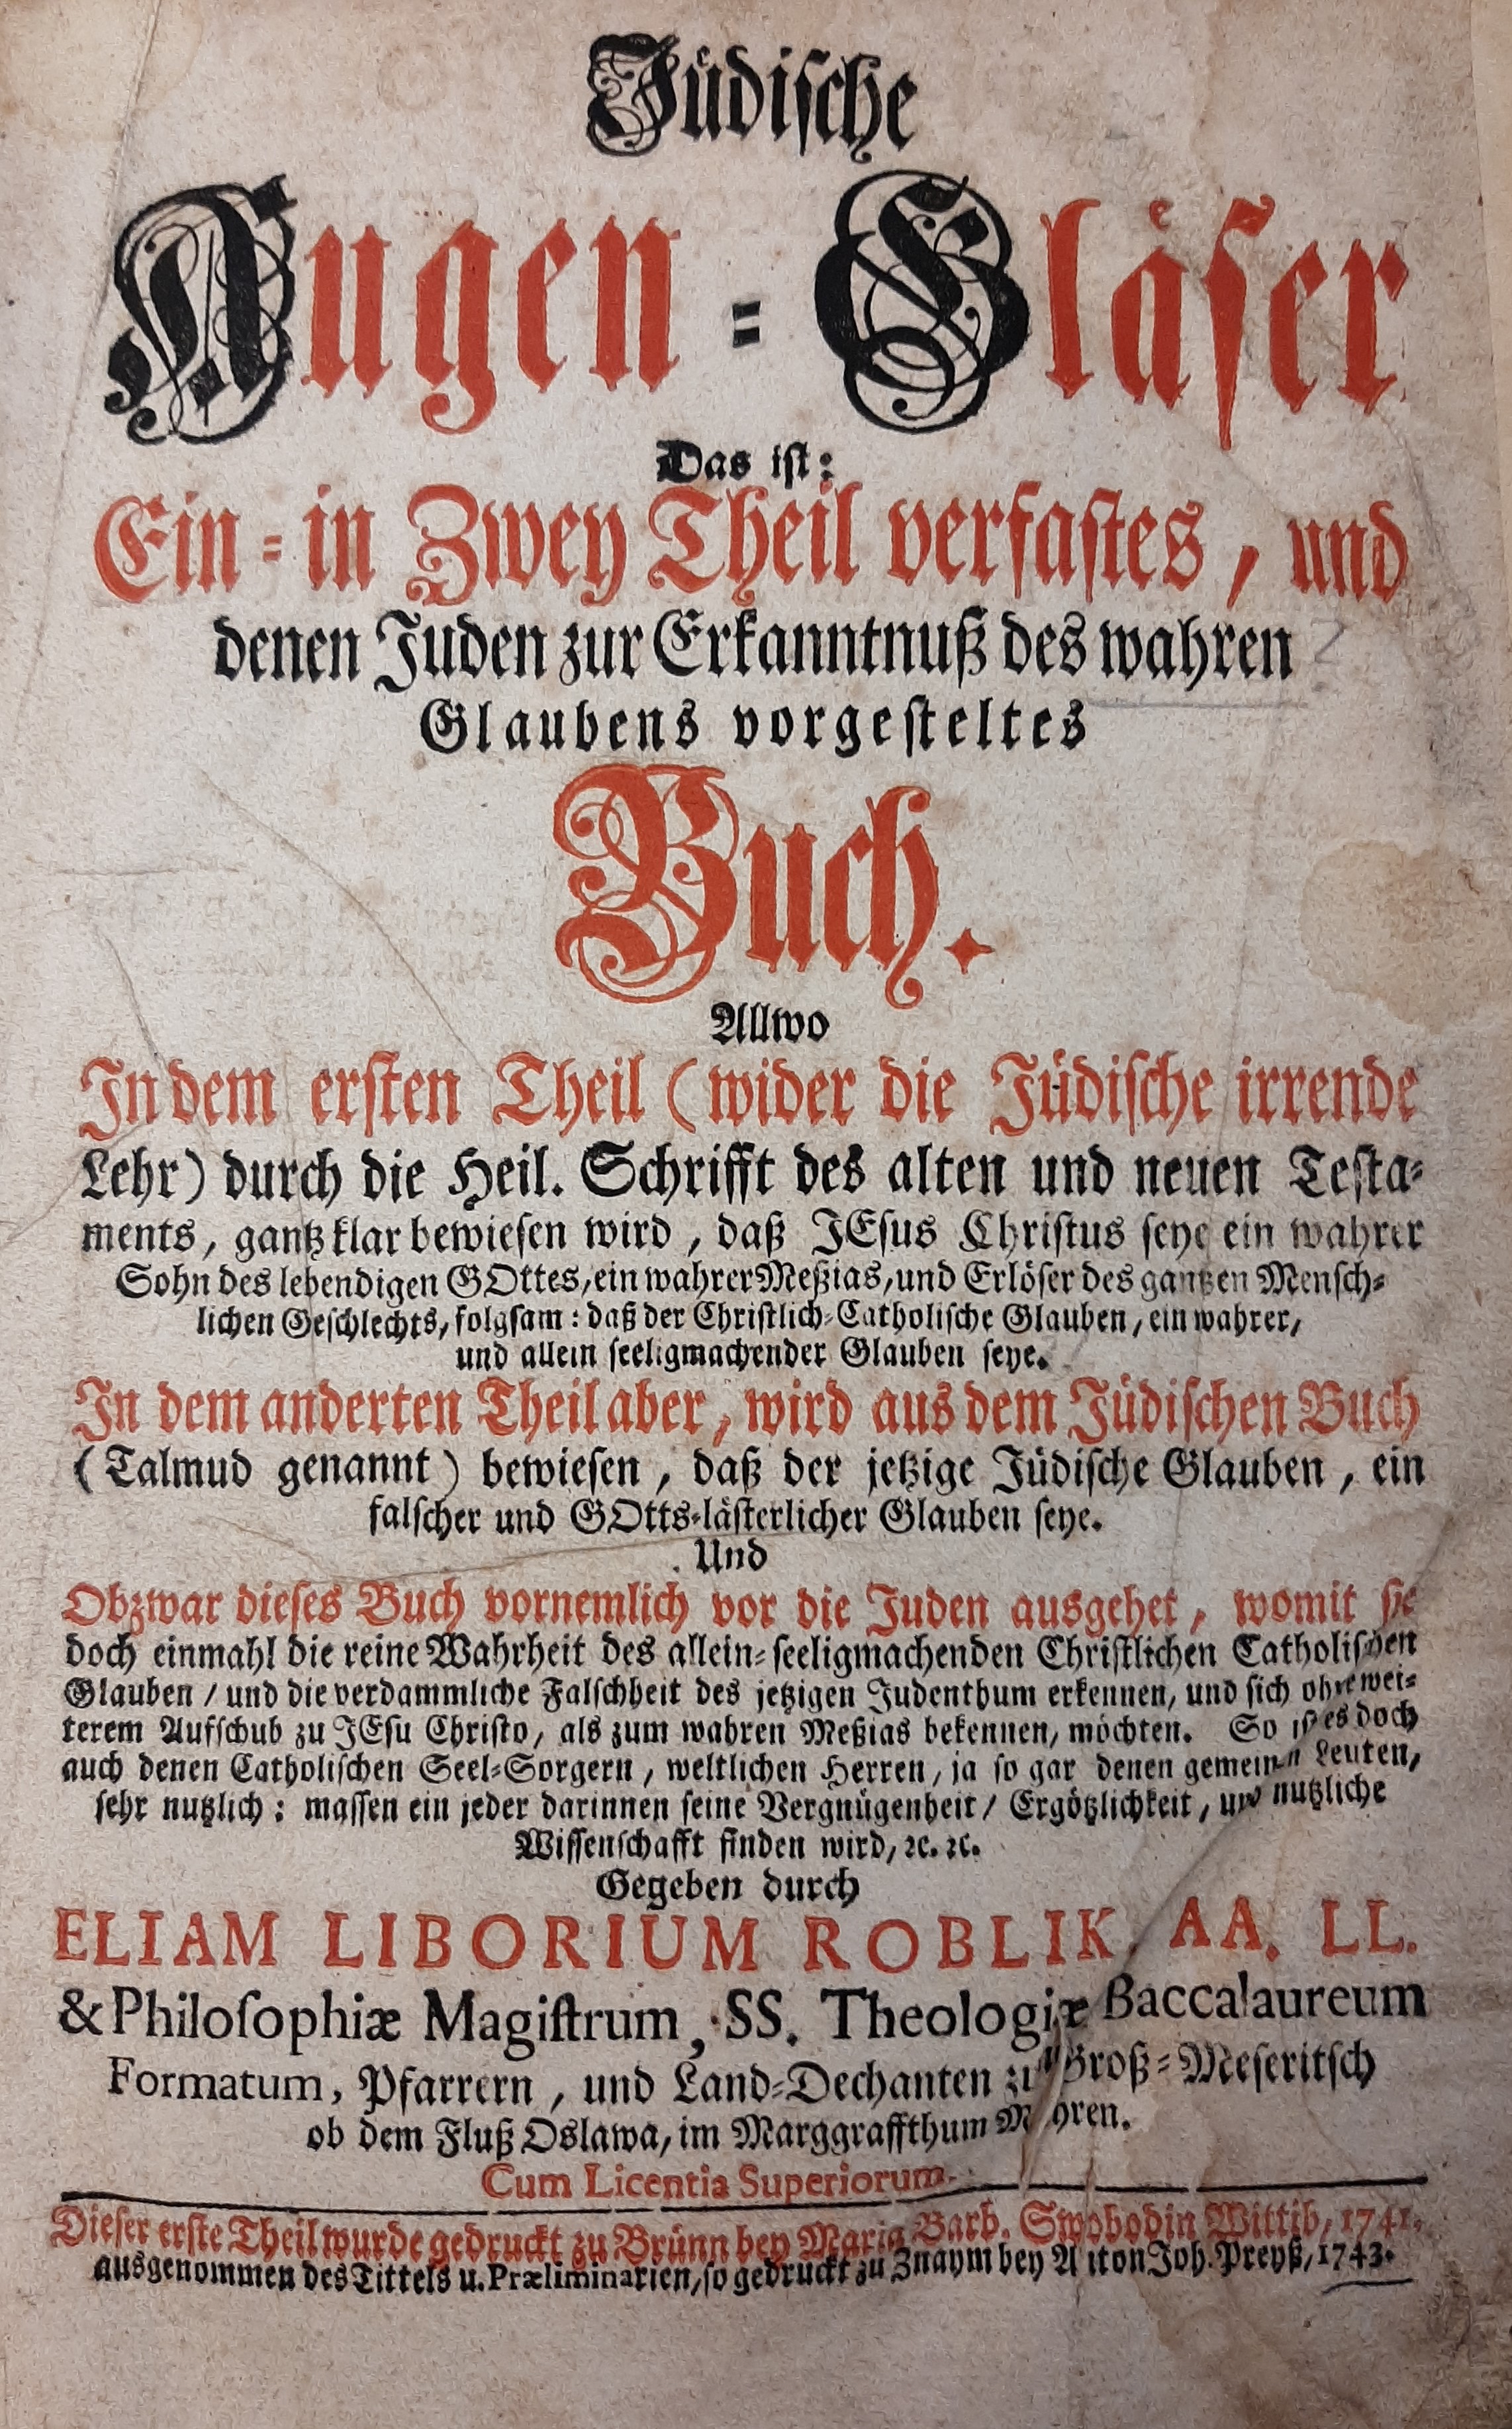 Jüdische
Augen-Gläser
Das ist:
Ein-in Zwey Theil verfastes, und
denen Juden zur Erkanntnuß des wahren
Glaubens vorgesteltes
Buch.
Allwo
In dem ersten Theil (wider die Jüdische irrende
Lehr) durch die Heil. Schrifft des alten und neuen Testa-
ments, gantz klar bewiesen wird, daß JEsus Christus seye ein wahrer
Sohn des lebendigen GOttes, ein wahrer Meßias, und Erlöser des gantzen Mensch-
lichen Geschlechts, folgsam: daß der Christlich-Catholische Glauben, ein wahrer,
und allein seeligmachender Glauben seye.
In dem anderten Theil aber, wird aus dem Jüdischen Buch
(Talmud genannt) bewiesen, daß der jetzige Jüdische Glauben, ein
falscher und GOtts-lästerlicher Glauben seye.
Und
Obzwar dieses Buch vornemlich vor die Juden ausgehet, womit sie
doch einmahl die reine Wahrheit des allein-seeligmachenden Christlichen Catholischen
Glauben / und die verdammliche Falschheit des jetzigen Judenthum erkennen, und sich ohne wei-
terem Aufschub zu JEsu Christo, als zum wahren Meßias bekennen, möchten. So ist es doch
auch denen Catholischen Seel-Sorgern, weltlichen Herren, ja so gar denen gemeinen Leuten,
sehr nutzlich: massen ein jeder darinnen seine Vergnügenheit / Ergötzlichkeit, und nutzliche
Wissenschafft finden wird, ꝛc. ꝛc.
Gegeben durch
ELIAM LIBORIUM ROBLIK, AA. LL.
& Philosophiæ Magistrum, SS. Theologiæ Baccalaureum
Formatum, Pfarrern, und Land-Dechanten zu Groß-Meseritsch
ob dem Fluß Oslawa, im Marggraffthum Mähren.
Cum Licentia Superiorum.
Dieser erste Theil wurde gedruckt zu Brünn bey Maria Barb. Swobodin Wittib, 1741.
ausgenommen des Tittels u. Præliminarien, so gedruckt zu Znaym bey Anton Joh. Preyß, 1743.